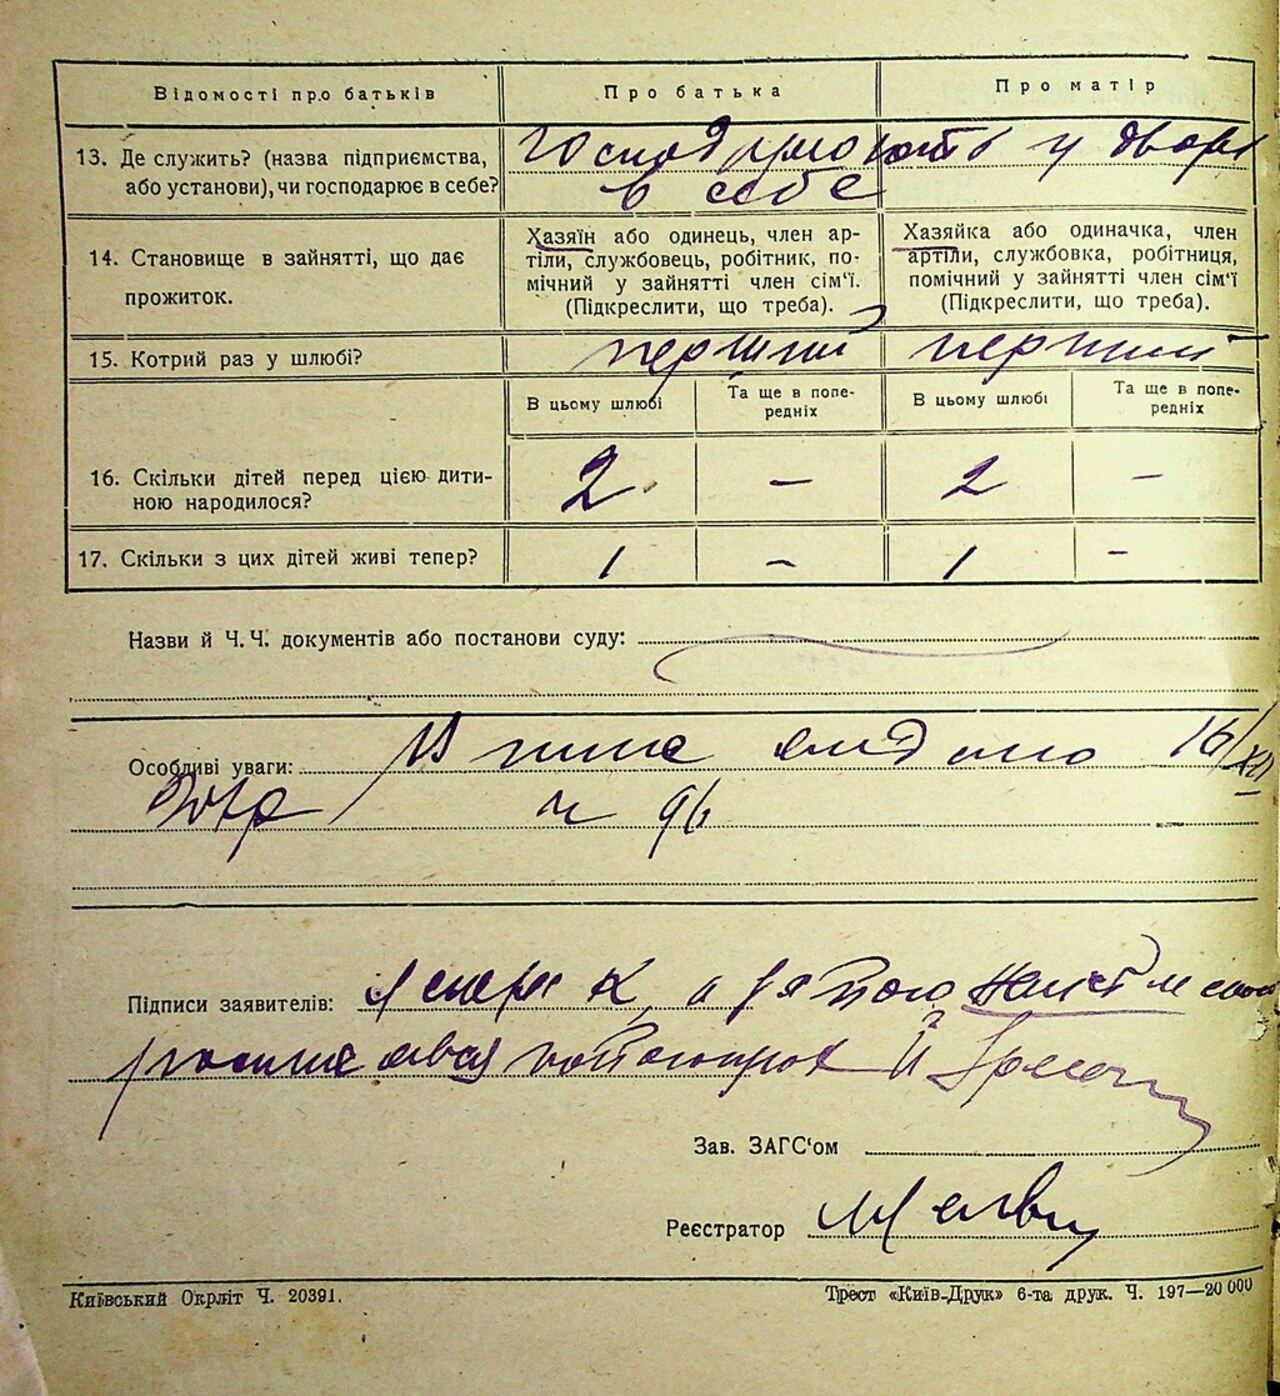 Відомості про батьків Про батька Про матір
13. Де служить? (назва підприємства, або установи), чи господарює в себе?
господарює
в себе
у дворі
14. Становище в зайнятті, що дає прожиток.
Хазяїн або одинець, член ар-
тіли, службовець, робітник, по-
мічний у зайнятті член сім'ї.
(Підкреслити, що треба).
Хазяйка або одиначка, член
артіли, службовка, робітниця,
помічний у зайнятті член сім'ї
(Підкреслити, що треба).
15. Котрий раз у шлюбі? перший перший
В цьому шлюбі Та ще в попе-
редніх В цьому шлюбі Та ще в попе-
редніх
16. Скільки дітей перед цією дити-
ною народилося? 2 – 2 –
17. Скільки з цих дітей живі тепер? 1 – 1 –
Назви й Ч.Ч. документів або постанови суду:
Особливі уваги: видано 16/XII
96
Підписи заявителів:
Зав. ЗАГС'ом
Реєстратор
Київський Окрліт Ч. 20391.
Трест «Київ-Друк» 6-та друк. Ч. 197—20 000